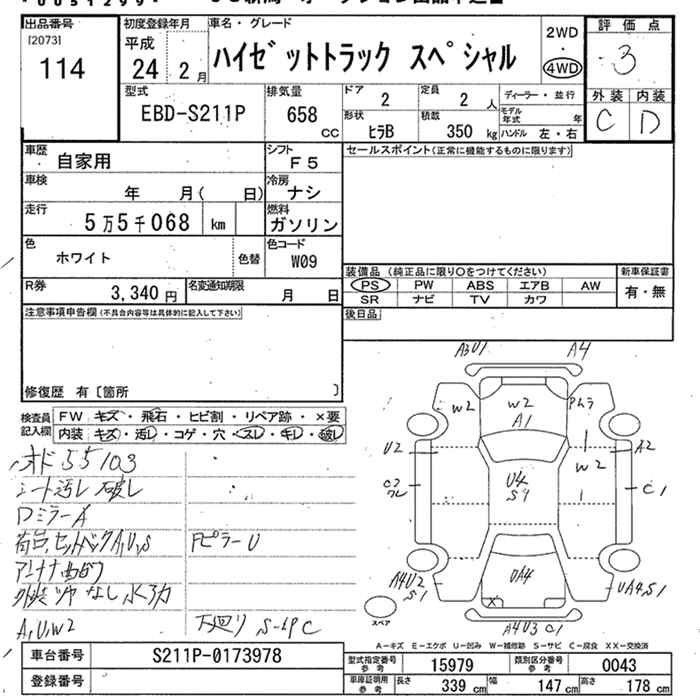 出品番号
[2073]
114
初度登録年月
平成
24 2月
車名・グレード
ハイゼットトラック スペシャル
2WD
・
4WD
評価点
3
外装 内装
C D
型式
EBD-S211P
排気量
658 CC
ドア
2
定員
2 人
ディーラー・並行
形状
ヒラB
積載
350 kg
モデル年式 年
ハンドル 左・右
車歴
自家用
シフト
F5
セールスポイント(正常に機能するものに限ります)
車検
年 月( 日)
冷房
ナシ
走行
5万5千068 km
燃料
ガソリン
色
ホワイト
色替
色コード
W09
R券
3,340 円
名変通知期限
月 日
装備品 (純正品に限り○をつけてください)
PS PW ABS エアB AW
SR ナビ TV カワ
新車保証書
有・無
注意事項申告欄(不具合内容等は具体的に記入して下さい)
後日品
修復歴 有〔箇所 〕
検査員記入欄
FW キズ・飛石・ヒビ割・リペア跡・×要
内装 キズ・汚レ・コゲ・穴・スレ・キレ・破レ
オド 55103
シート汚レ 破レ
ロミラーA
荷台,セットバックA,U,S
FピラーU
アンテナ曲がり
外装ツヤなし 水アカ
A,U,W2
下廻り S-tPC
A3U1
A4
W2
W2
A1
U2
A2
W2
U4
S1
C1
A4U2
S1
UA4
UA4,S1
X
A4U3 C1
スペア
A－キズ E－エクボ U－凹み W－補修跡 S－サビ C－腐食 XX－交換済
車台番号
S211P-0173978
登録番号
型式指定番号 参考
15979
類別区分番号 参考
0043
車庫証明用 参考
長さ 339 cm
幅 147 cm
高さ 178 cm